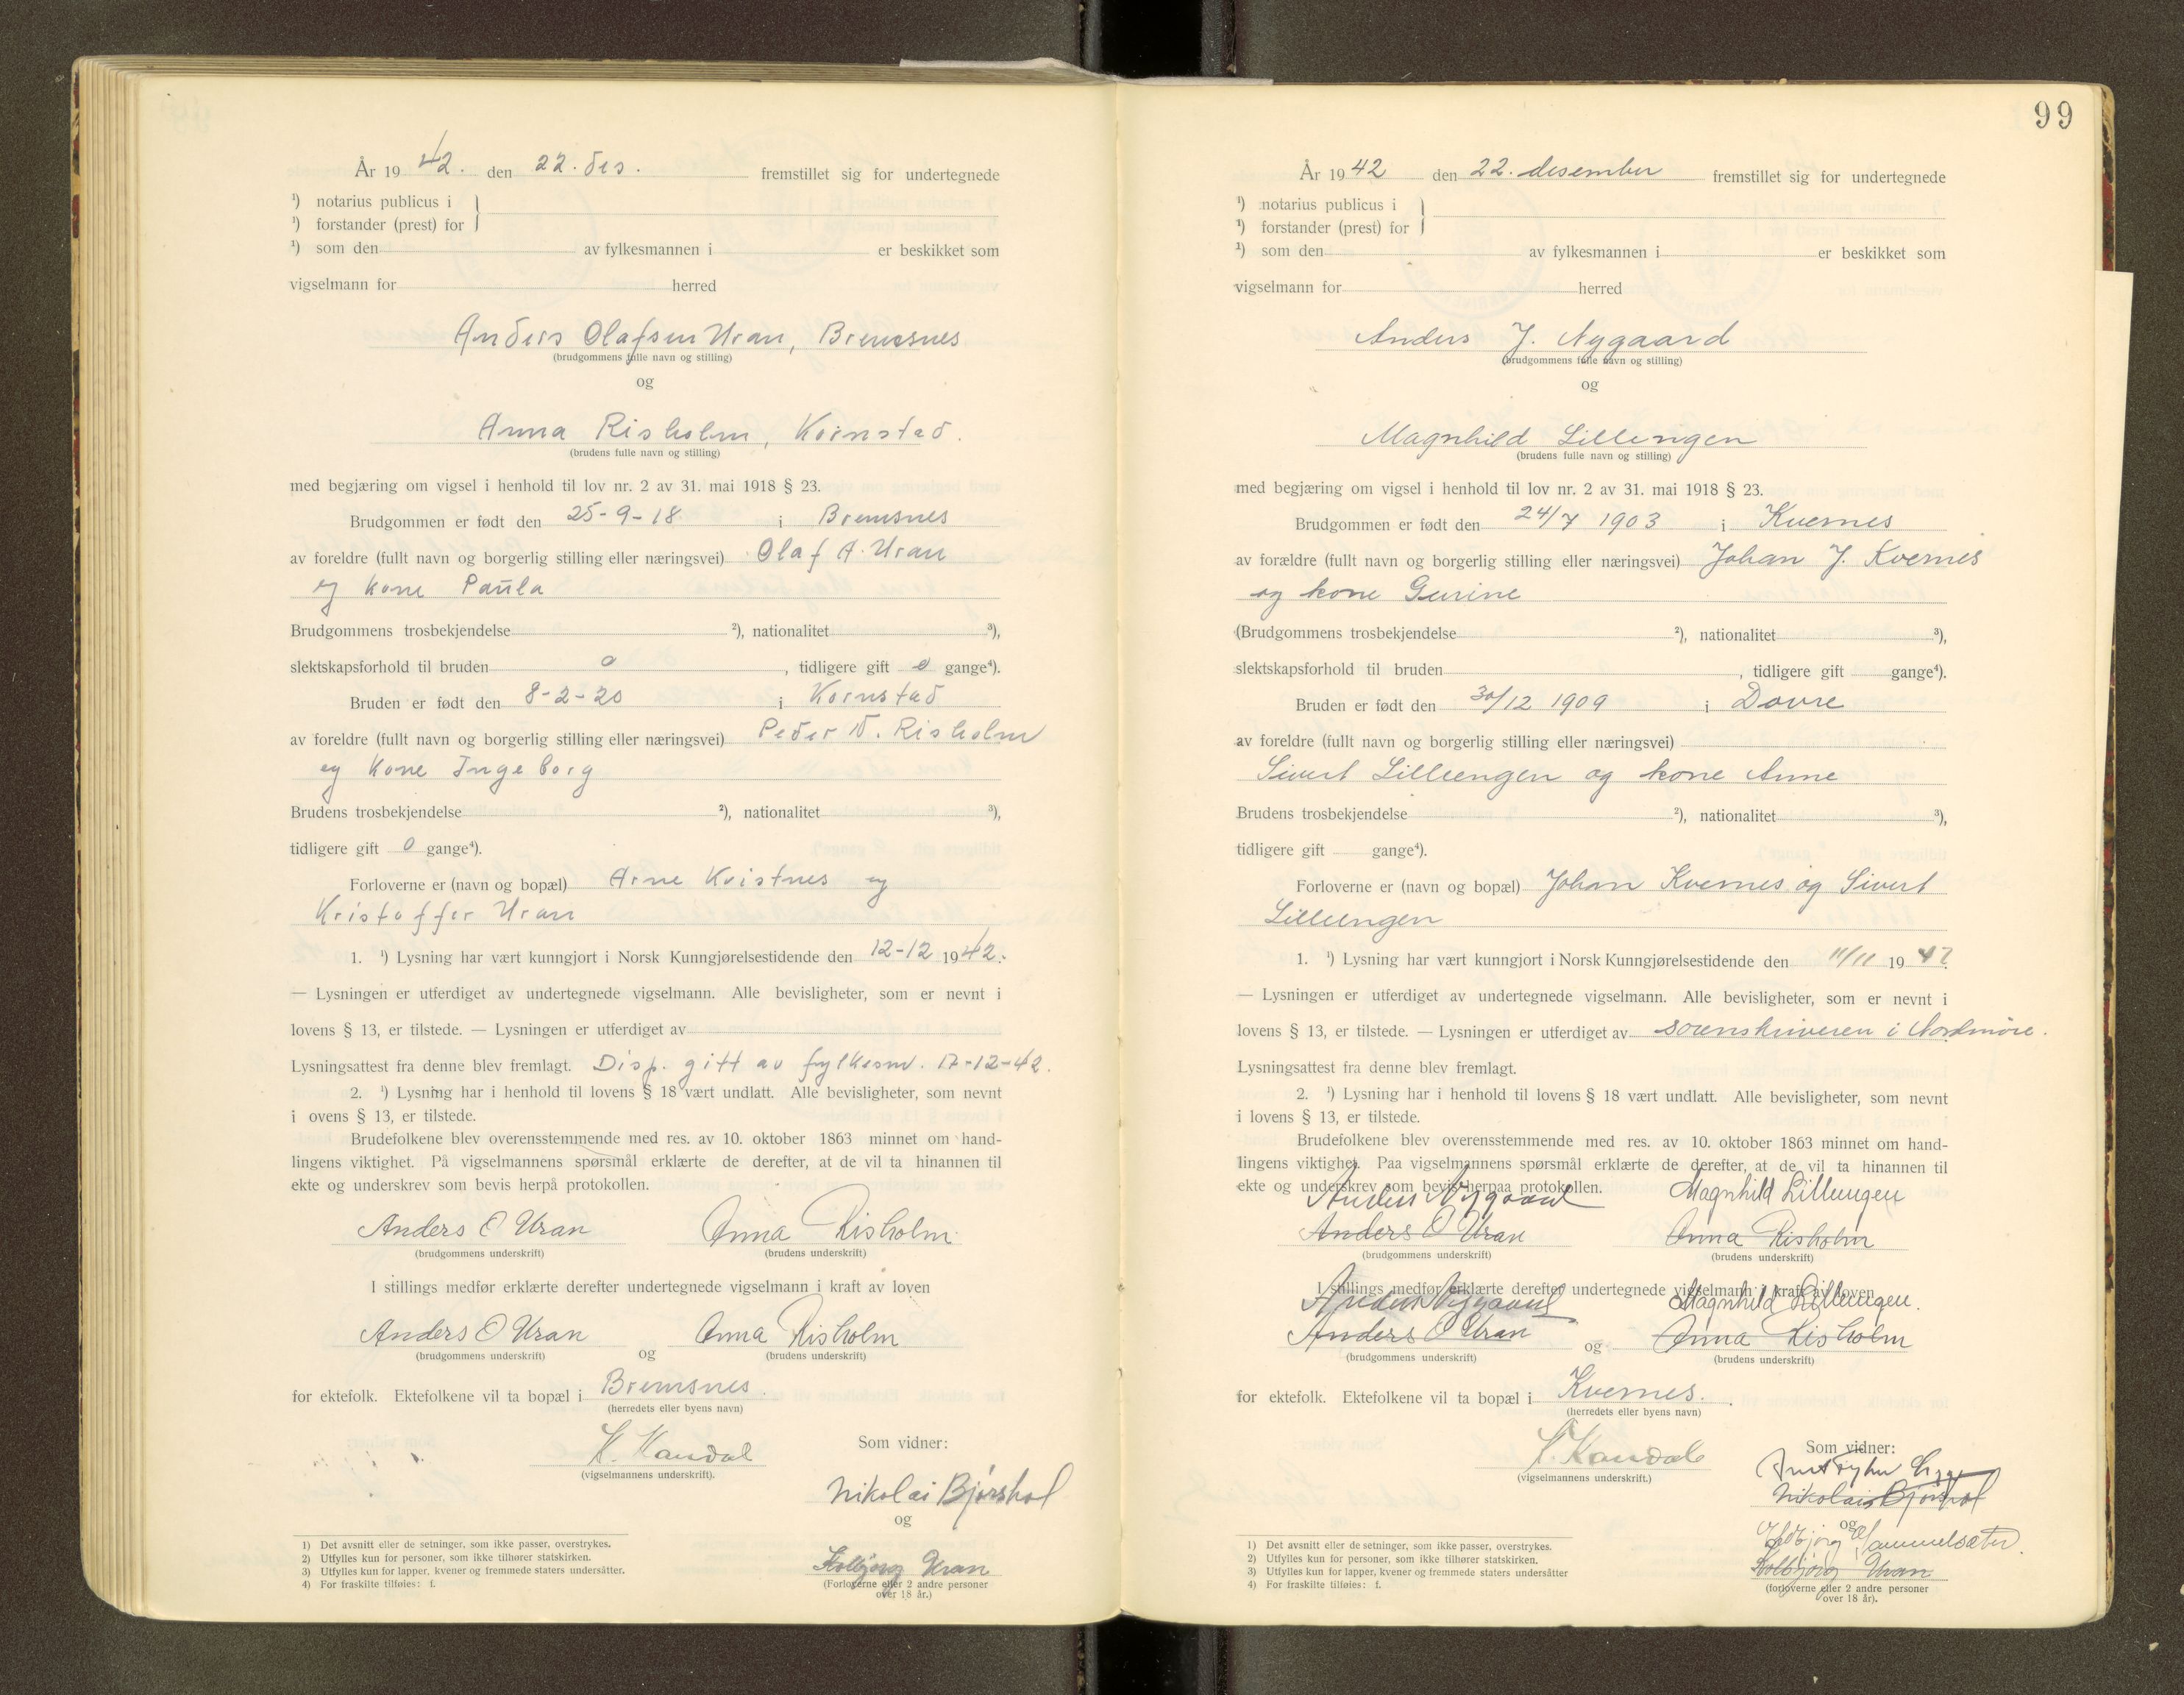 År 1942. den 22. des. fremstillet sig for undertegnede
¹) notarius publicus i
¹) forstander (prest) for
¹) som den av fylkesmannen i er beskikket som
vigselmann for herred
Anders Olafsen Uran, Bremsnes
(brudgommens fulle navn og stilling)
og
Anna Risholm, Kornstad.
(brudens fulle navn og stilling)
med begjæring om vigsel i henhold til lov nr. 2 av 31. mai 1918 § 23.
Brudgommen er født den 25-9-18 i Bremsnes
av foreldre (fullt navn og borgerlig stilling eller næringsvei) Olaf A. Uran
og kone Paula
Brudgommens trosbekjendelse ²), nationalitet ³),
slektskapsforhold til bruden 0, tidligere gift 0 gange⁴).
Bruden er født den 8-2-20 i Kornstad
av foreldre (fullt navn og borgerlig stilling eller næringsvei) Peder N. Risholm
og kone Ingeborg
Brudens trosbekjendelse ²), nationalitet ³),
tidligere gift 0 gange⁴).
Forloverne er (navn og bopæl) Arne Kvistnes og
Kristoffer Uran
1. ¹) Lysning har vært kunngjort i Norsk Kunngjørelsestidende den 12-12 1942.
— Lysningen er utferdiget av undertegnede vigselmann. Alle bevisligheter, som er nevnt i
lovens § 13, er tilstede. — Lysningen er utferdiget av
Lysningsattest fra denne blev fremlagt. Disp. gitt av fylkesm. 17-12-42.
2. ¹) Lysning har i henhold til lovens § 18 vært undlatt. Alle bevisligheter, som nevnt
i ovens § 13, er tilstede.
Brudefolkene blev overensstemmende med res. av 10. oktober 1863 minnet om hand-
lingens viktighet. På vigselmannens spørsmål erklærte de derefter, at de vil ta hinannen til
ekte og underskrev som bevis herpå protokollen.
Anders O Uran Anna Risholm
(brudgommens underskrift) (brudens underskrift)
I stillings medfør erklærte derefter undertegnede vigselmann i kraft av loven
Anders O Uran Anna Risholm
(brudgommens underskrift) og (brudens underskrift)
for ektefolk. Ektefolkene vil ta bopæl i Bremsnes.
(herredets eller byens navn)
K. Kandal Som vidner:
(vigselmannens underskrift).
Nikolai Bjørshol
og
Kolbjørg Uran
(Forloverne eller 2 andre personer
over 18 år.)
1) Det avsnitt eller de setninger, som ikke passer, overstrykes.
2) Utfylles kun for personer, som ikke tilhører statskirken.
3) Utfylles kun for lapper, kvener og fremmede staters undersåtter.
4) For fraskilte tilføies: f.
99
År 1942 den 22. desember fremstillet sig for undertegnede
¹) notarius publicus i
¹) forstander (prest) for
¹) som den av fylkesmannen i er beskikket som
vigselmann for herred
Anders J. Nygaard
(brudgommens fulle navn og stilling)
og
Magnhild Lillengen
(brudens fulle navn og stilling)
med begjæring om vigsel i henhold til lov nr. 2 av 31. mai 1918 § 23.
Brudgommen er født den 24/7 1903 i Kvernes
av forældre (fullt navn og borgerlig stilling eller næringsvei) Johan J. Kvernes
og kone Gurine
(Brudgommens trosbekjendelse ²), nationalitet ³),
slektskapsforhold til bruden, tidligere gift gange⁴).
Bruden er født den 30/12 1909 i Dovre
av foreldre (fullt navn og borgerlig stilling eller næringsvei)
Sivert Lilleengen og kone Anne
Brudens trosbekjendelse ²), nationalitet ³),
tidligere gift gange⁴).
Forloverne er (navn og bopæl) Johan Kvernes og Sivert
Lilleengen
1. ¹) Lysning har vært kunngjort i Norsk Kunngjørelsestidende den 11/11 1942.
— Lysningen er utferdiget av undertegnede vigselmann. Alle bevisligheter, som er nevnt i
lovens § 13, er tilstede. — Lysningen er utferdiget av sorenskriveren i Nordmøre.
Lysningsattest fra denne blev fremlagt.
2. ¹) Lysning har i henhold til lovens § 18 vært undlatt. Alle bevisligheter, som nevnt
i lovens § 13, er tilstede.
Brudefolkene blev overensstemmende med res. av 10. oktober 1863 minnet om hand-
lingens viktighet. Paa vigselmannens spørsmål erklærte de derefter, at de vil ta hinannen til
ekte og underskrev som bevis herpaa protokollen.
Anders Nygaard Magnhild Lillengen
Anders O Uran Anna Risholm
(brudgommens underskrift) (brudens underskrift)
I stillings medfør erklærte derefter undertegnede vigselmann i kraft av loven
Anders Nygaard Magnhild Lillengen.
Anders O Uran og Anna Risholm
(brudgommens underskrift) (brudens underskrift)
for ektefolk. Ektefolkene vil ta bopæl i Kvernes.
(herredets eller byens navn)
K. Kandal Som vidner:
(vigselmannens underskrift.)
Nikolai Bjørshol
og
Sammelsæter.
Kolbjørg Uran
(forloverne eller 2 andre personer
over 18 år).
1) Det avsnitt eller de setninger, som ikke passer, overstrykes.
2) Utfylles kun for personer, som ikke tilhører statskirken.
3) Utfylles kun for lapper, kvener og fremmede staters undersåtter
4) For fraskilte tilføies: f.